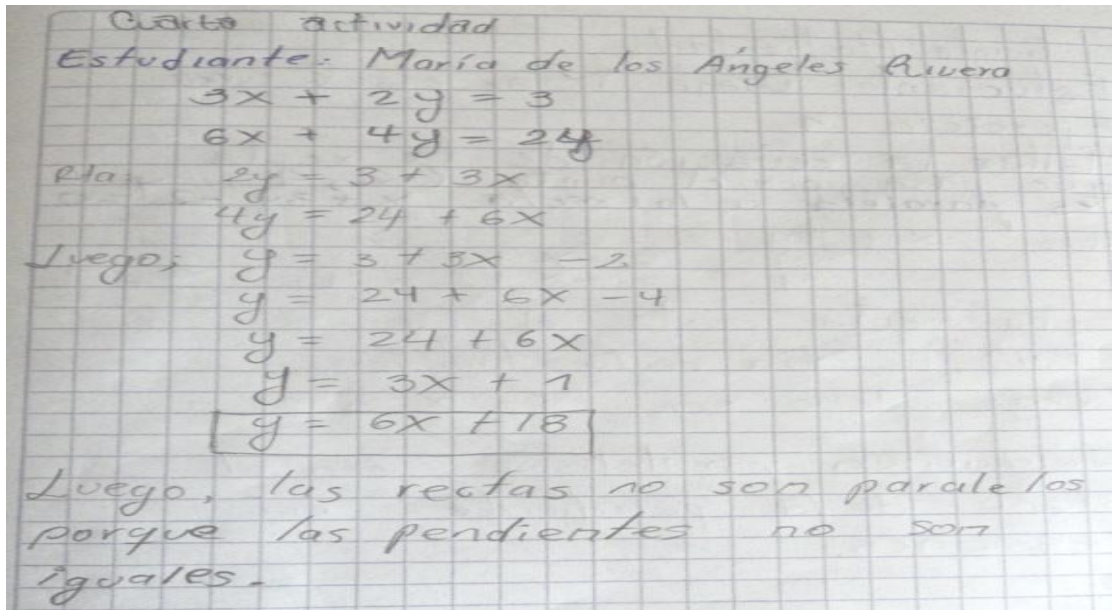 Cuarta actividad
Estudiante: María de los Ángeles Rivera
3x + 2y = 3
6x + 4y = 24
Rta 2y = 3 + 3x
4y = 24 + 6x
Luego; y = 3 + 3x - 2
y = 24 + 6x - 4
y = 24 + 6x
y = 3x + 1
y = 6x + 18
Luego, las rectas no son paralelos
porque las pendientes no son
iguales.